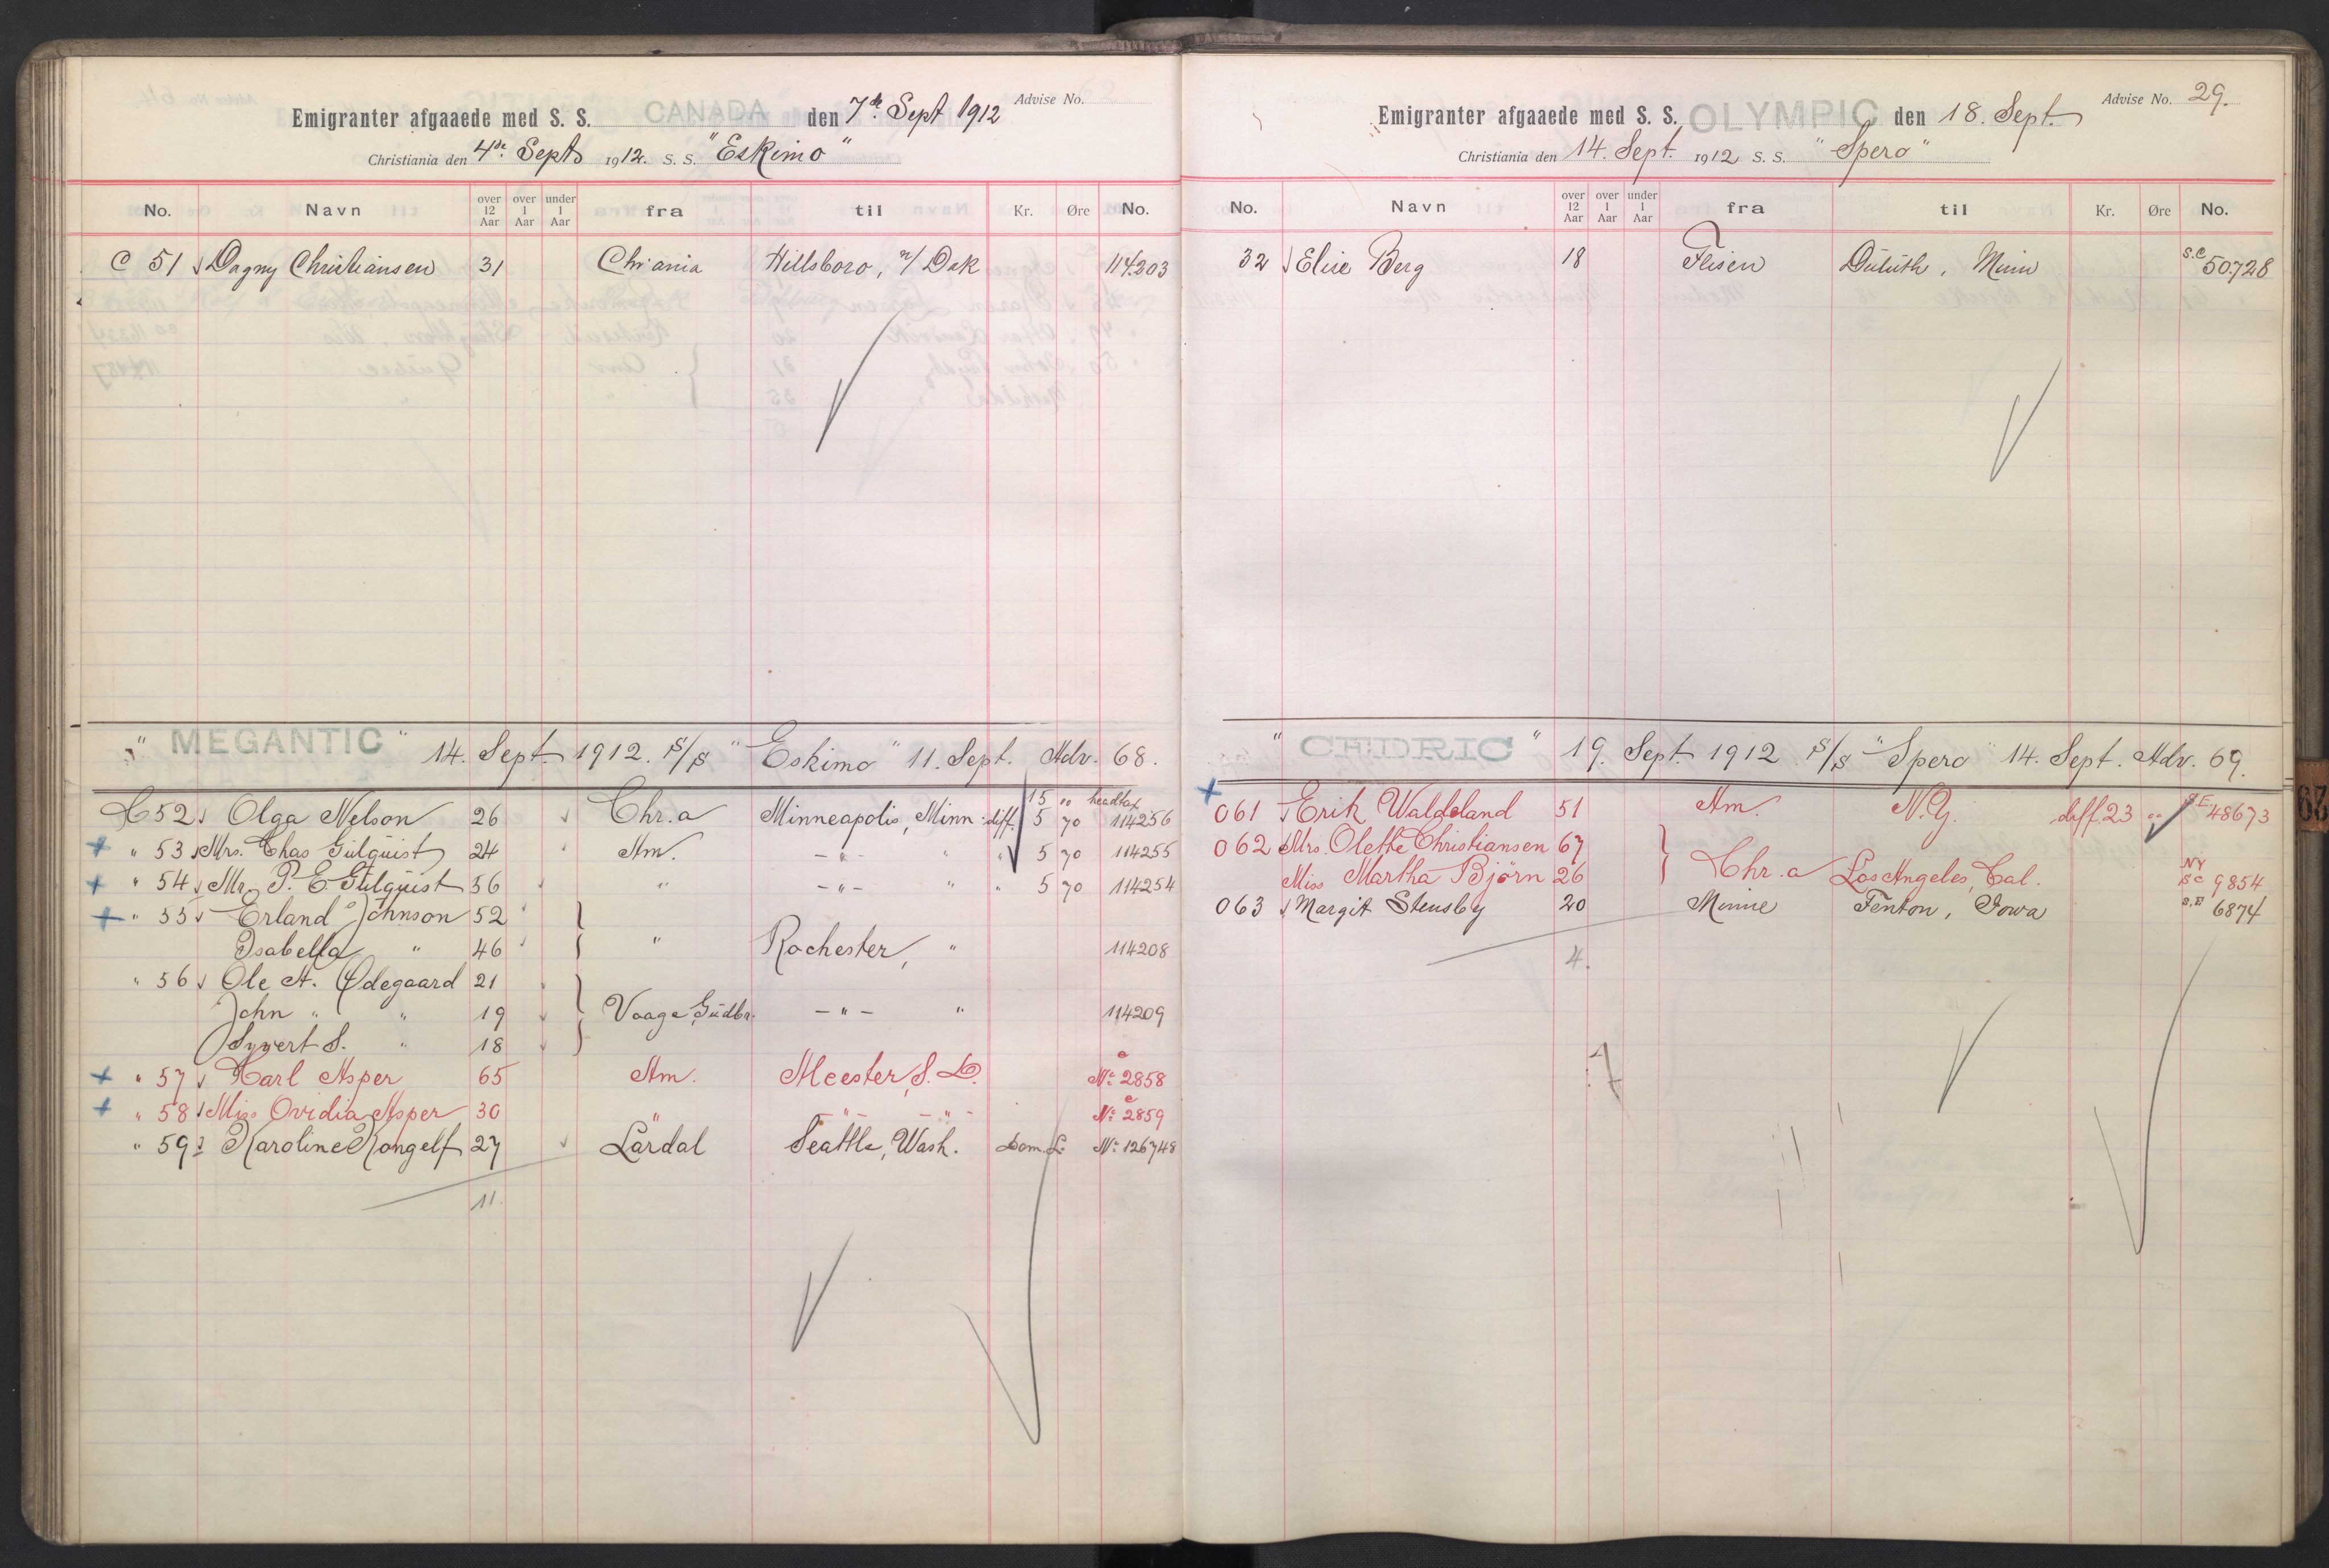 Emigranter afgaaede med S. S. CANADA den 7de Sept 1912 Advise No.
Christiania den 4de Sept 1912. S. S. "Eskimo"
No. Navn over 12 Aar over 1 Aar under 1 Aar fra til Kr. Øre No.
C 51 Dagny Christiansen 31 Chr'ania Hillsboro, N/Dak 114203
" MEGANTIC " 14. Sept. 1912. S/S " Eskimo " 11. Sept. Adv. 68.
15 " headtax
C 52 Olga Nelson 26 Chr.a Minneapolis, Minn. diff. 5 70 114256
" 53 Mrs. Chas Gulquist 24 Am. - " - " " 5 70 114255
" 54 Mr. P. E. Gulquist 56 " - " - " " 5 70 114254
" 55 Erland Johnson 52
Isabella " 46 " Rochester, " 114208
" 56 Ole A. Ødegaard 21
John " " 19 Vaage Gudbr. - " - " 114209
Syvert S. " 18
" 57 Karl Asper 65 Am. Meester, S. D. No. 2858
" 58 Miss Ovidia Asper 30 " - " - - " - No. 2859
" 59 Karoline Kongelf 27 Lärdal Seattle, Wash. Dom. L. No. 126748
11.
Emigranter afgaaede med S. S. OLYMPIC den 18. Sept. Advise No. 29.
Christiania den 14. Sept. 1912 S. S. "Spero"
No. Navn over 12 Aar over 1 Aar under 1 Aar fra til Kr. Øre No.
32 Elise Berg 18 Flisen Duluth, Minn S.C 50728
" CEDRIC " 19. Sept 1912 S/S "Spero" 14. Sept. Adv. 69.
061 Erik Waldeland 51 Am. N.Y. diff. 23 " S E 48673
062 Mrs. Olette Christiansen 67
Miss Martha Bjørn 26 Chr.a Los Angeles, Cal. NY SC 9854
063 Margit Stensby 20 Minne Fenton, Iowa S.E 6874
4.
29